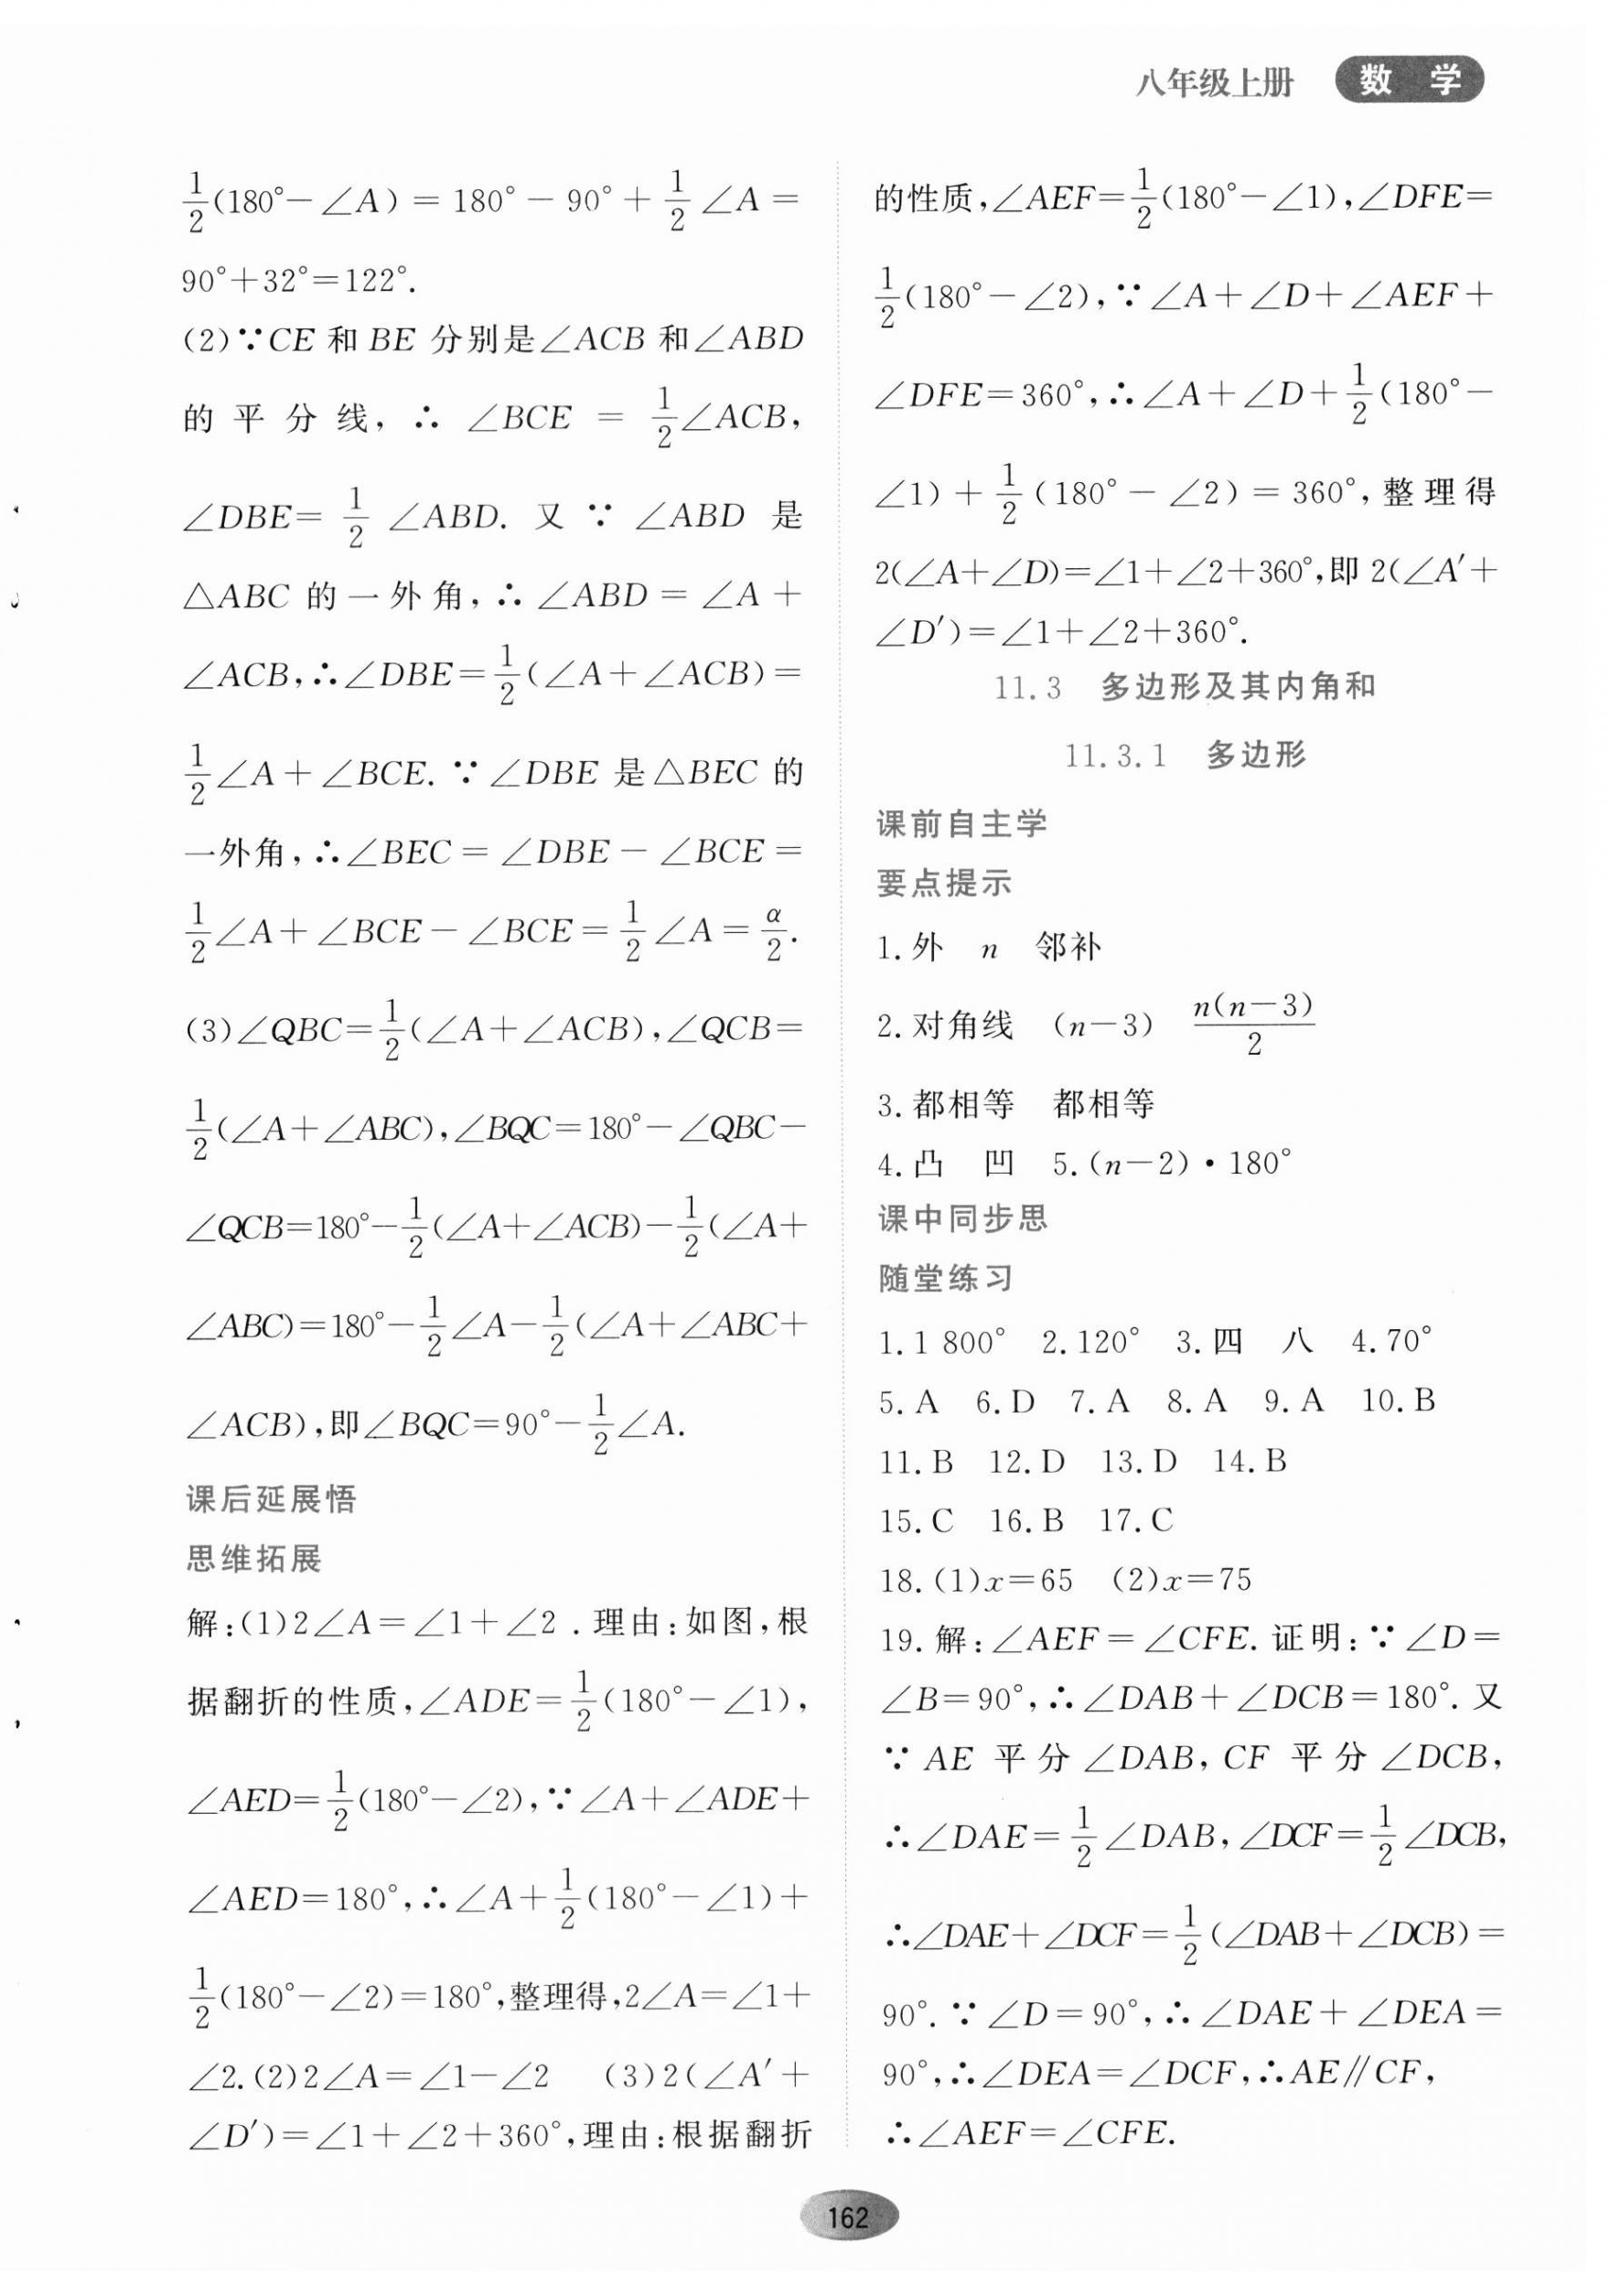 八年级上册 数 学
1/2(180°－∠A)＝180°－90°＋1/2∠A＝
90°＋32°＝122°.
(2)∵CE 和 BE 分别是∠ACB 和∠ABD
的平分线，∴ ∠BCE ＝ 1/2∠ACB，
∠DBE＝ 1/2 ∠ABD. 又 ∵ ∠ABD 是
△ABC 的一外角，∴ ∠ABD ＝ ∠A ＋
∠ACB，∴∠DBE＝1/2(∠A＋∠ACB)＝
1/2∠A＋∠BCE. ∵ ∠DBE 是△BEC 的
一外角，∴∠BEC＝∠DBE－∠BCE＝
1/2∠A＋∠BCE－∠BCE＝1/2∠A＝α/2.
(3)∠QBC＝1/2(∠A＋∠ACB)，∠QCB＝
1/2(∠A＋∠ABC)，∠BQC＝180°－∠QBC－
∠QCB＝180°－1/2(∠A＋∠ACB)－1/2(∠A＋
∠ABC)＝180°－1/2∠A－1/2(∠A＋∠ABC＋
∠ACB)，即∠BQC＝90°－1/2∠A.
课后延展悟
思维拓展
解：(1)2∠A＝∠1＋∠2 . 理由：如图，根
据翻折的性质，∠ADE＝1/2(180°－∠1)，
∠AED＝1/2(180°－∠2)，∵∠A＋∠ADE＋
∠AED＝180°，∴∠A＋1/2(180°－∠1)＋
1/2(180°－∠2)＝180°，整理得，2∠A＝∠1＋
∠2. (2)2∠A＝∠1－∠2 (3)2(∠A′＋
∠D′)＝∠1＋∠2＋360°，理由：根据翻折
的性质，∠AEF＝1/2(180°－∠1)，∠DFE＝
1/2(180°－∠2)，∵∠A＋∠D＋∠AEF＋
∠DFE＝360°，∴∠A＋∠D＋1/2(180°－
∠1)＋1/2(180°－∠2)＝360°，整理得
2(∠A＋∠D)＝∠1＋∠2＋360°，即 2(∠A′＋
∠D′)＝∠1＋∠2＋360°.
11.3 多边形及其内角和
11.3.1 多边形
课前自主学
要点提示
1. 外 n 邻补
2. 对角线 (n－3) n(n－3)/2
3. 都相等 都相等
4. 凸 凹 5. (n－2)·180°
课中同步思
随堂练习
1. 1 800° 2. 120° 3. 四 八 4. 70°
5. A 6. D 7. A 8. A 9. A 10. B
11. B 12. D 13. D 14. B
15. C 16. B 17. C
18. (1)x＝65 (2)x＝75
19. 解：∠AEF＝∠CFE. 证明：∵∠D＝
∠B＝90°，∴∠DAB＋∠DCB＝180°. 又
∵ AE 平分∠DAB，CF 平分∠DCB，
∴∠DAE＝1/2∠DAB，∠DCF＝1/2∠DCB，
∴∠DAE＋∠DCF＝1/2(∠DAB＋∠DCB)＝
90°. ∵∠D＝90°，∴∠DAE＋∠DEA＝
90°，∴∠DEA＝∠DCF，∴AE∥CF，
∴∠AEF＝∠CFE.
162